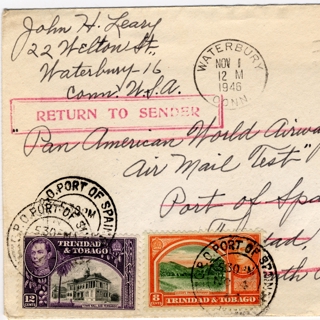 John H. Leary
22 Welton St.,
Waterbury-16
Conn. U.S.A.
WATERBURY
NOV 1
12 M
1946
CONN
RETURN TO SENDER
"Pan American World Airway
Air Mail Test"
Port of Spa
Trinidad,
PORT OF SPAIN
G.P.O. PORT OF SPAIN
5.30 PM
G.P.O. PORT OF SPAIN
5.30 PM
TRINIDAD
& TOBAGO
12
CENTS
8
CENTS
TRINIDAD & TOBAGO